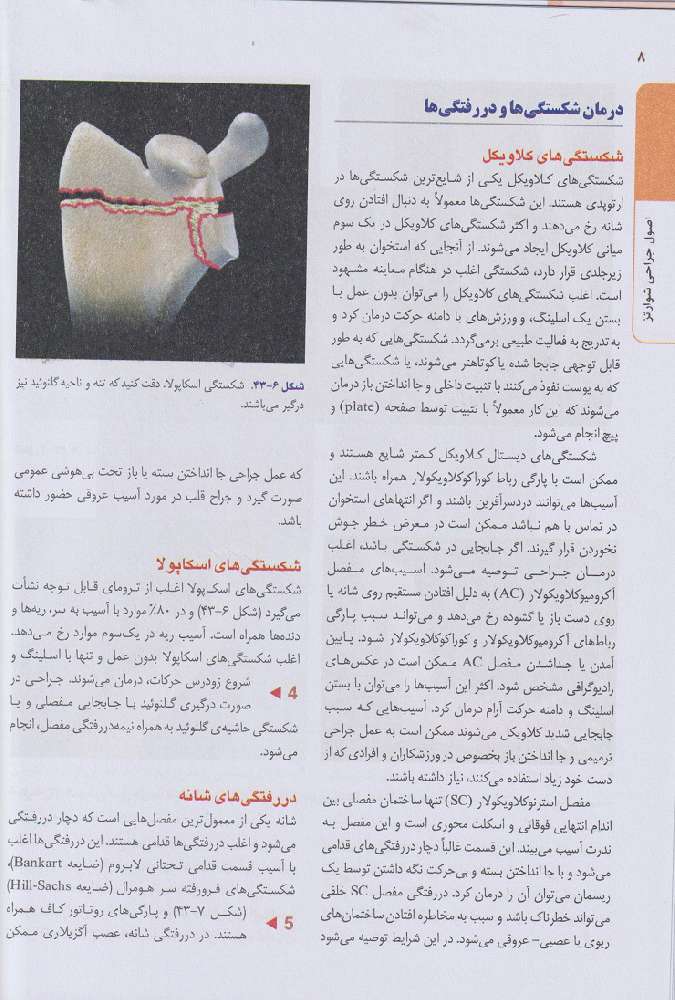 ۸
اصول جراحی شوارتز
درمان شکستگی‌ها و دررفتگی‌ها
شکستگی‌های کلاویکل
شکستگی‌های کلاویکل یکی از شایع‌ترین شکستگی‌ها در
ارتوپدی هستند. این شکستگی‌ها معمولاً به دنبال افتادن روی
شانه رخ می‌دهند و اکثر شکستگی‌های کلاویکل در یک سوم
میانی کلاویکل ایجاد می‌شوند. از آنجایی که استخوان به طور
زیرجلدی قرار دارد، شکستگی اغلب در هنگام معاینه مشهود
است. اغلب شکستگی‌های کلاویکل را می‌توان بدون عمل با
بستن یک اسلینگ، و ورزش‌های با دامنه حرکت درمان کرد و
به تدریج به فعالیت طبیعی برمی‌گردد. شکستگی‌هایی که به طور
قابل توجهی جابجا شده یا کوتاهتر می‌شوند، یا شکستگی‌هایی
که به پوست نفوذ می‌کنند با تثبیت داخلی و جا انداختن باز درمان
می‌شوند که این کار معمولاً با تثبیت توسط صفحه (plate) و
پیچ انجام می‌شود.
شکستگی‌های دیستال کلاویکل کمتر شایع هستند و
ممکن است با پارگی رباط کوراکوکلاویکولار همراه باشند. این
آسیب‌ها می‌توانند دردسرآفرین باشند و اگر انتهاهای استخوان
در تماس با هم نباشد ممکن است در معرض خطر جوش
نخوردن قرار گیرند. اگر جابجایی در شکستگی باشد، اغلب
درمان جراحی توصیه می‌شود. آسیب‌های مفصل
آکرومیوکلاویکولار (AC) به دلیل افتادن مستقیم روی شانه یا
روی دست باز یا گشوده رخ می‌دهد و می‌تواند سبب پارگی
رباط‌های آکرومیوکلاویکولار و کوراکوکلاویکولار شود. پایین
آمدن یا جداشدن مفصل AC ممکن است در عکس‌های
رادیوگرافی مشخص شود. اکثر این آسیب‌ها را می‌توان با بستن
اسلینگ و دامنه حرکت آرام درمان کرد. آسیب‌هایی که سبب
جابجایی شدید کلاویکل می‌شوند ممکن است به عمل جراحی
ترمیمی و جا انداختن باز بخصوص در ورزشکاران و افرادی که از
دست خود زیاد استفاده می‌کنند، نیاز داشته باشند.
مفصل استرنوکلاویکولار (SC) تنها ساختمان مفصلی بین
اندام انتهایی فوقانی و اسکلت محوری است و این مفصل به
ندرت آسیب می‌بیند. این قسمت غالباً دچار دررفتگی‌های قدامی
می‌شود و با جا انداختن بسته و بی‌حرکت نگه داشتن توسط یک
ریسمان می‌توان آن را درمان کرد. دررفتگی مفصل SC خلفی
می‌تواند خطرناک باشد و سبب به مخاطره افتادن ساختمان‌های
ریوی یا عصبی- عروقی می‌شود. در این شرایط توصیه می‌شود
شکل ۶-۴۳. شکستگی اسکاپولا. دقت کنید که تنه و ناحیه گلنوئید نیز
درگیر می‌باشند.
که عمل جراحی جا انداختن بسته یا باز تحت بی‌هوشی عمومی
صورت گیرد و جراح قلب در مورد آسیب عروقی حضور داشته
باشد.
شکستگی‌های اسکاپولا
شکستگی‌های اسکاپولا اغلب از ترومای قابل توجه نشأت
می‌گیرد (شکل ۶-۴۳) و در ۸۰٪ موارد با آسیب به سر، ریه‌ها و
دنده‌ها همراه است. آسیب ریه در یک‌سوم موارد رخ می‌دهد.
اغلب شکستگی‌های اسکاپولا بدون عمل و تنها با اسلینگ و
4 ◄ شروع زودرس حرکات، درمان می‌شوند. جراحی در
صورت درگیری گلنوئید با جابجایی مفصلی و یا
شکستگی حاشیه‌ی گلنوئید به همراه نیمه‌دررفتگی مفصل، انجام
می‌شود.
دررفتگی‌های شانه
شانه یکی از معمول‌ترین مفصل‌هایی است که دچار دررفتگی
می‌شود و اغلب دررفتگی‌ها قدامی هستند. این دررفتگی‌ها اغلب
با آسیب قسمت قدامی تحتانی لابروم (ضایعه Bankart)،
شکستگی‌های فرورفته سر هومرال (ضایعه Hill-Sachs)
5 ◄ (شکل ۷-۴۳) و پارگی‌های روتاتور کاف همراه
هستند. در دررفتگی شانه، عصب آگزیلاری ممکن